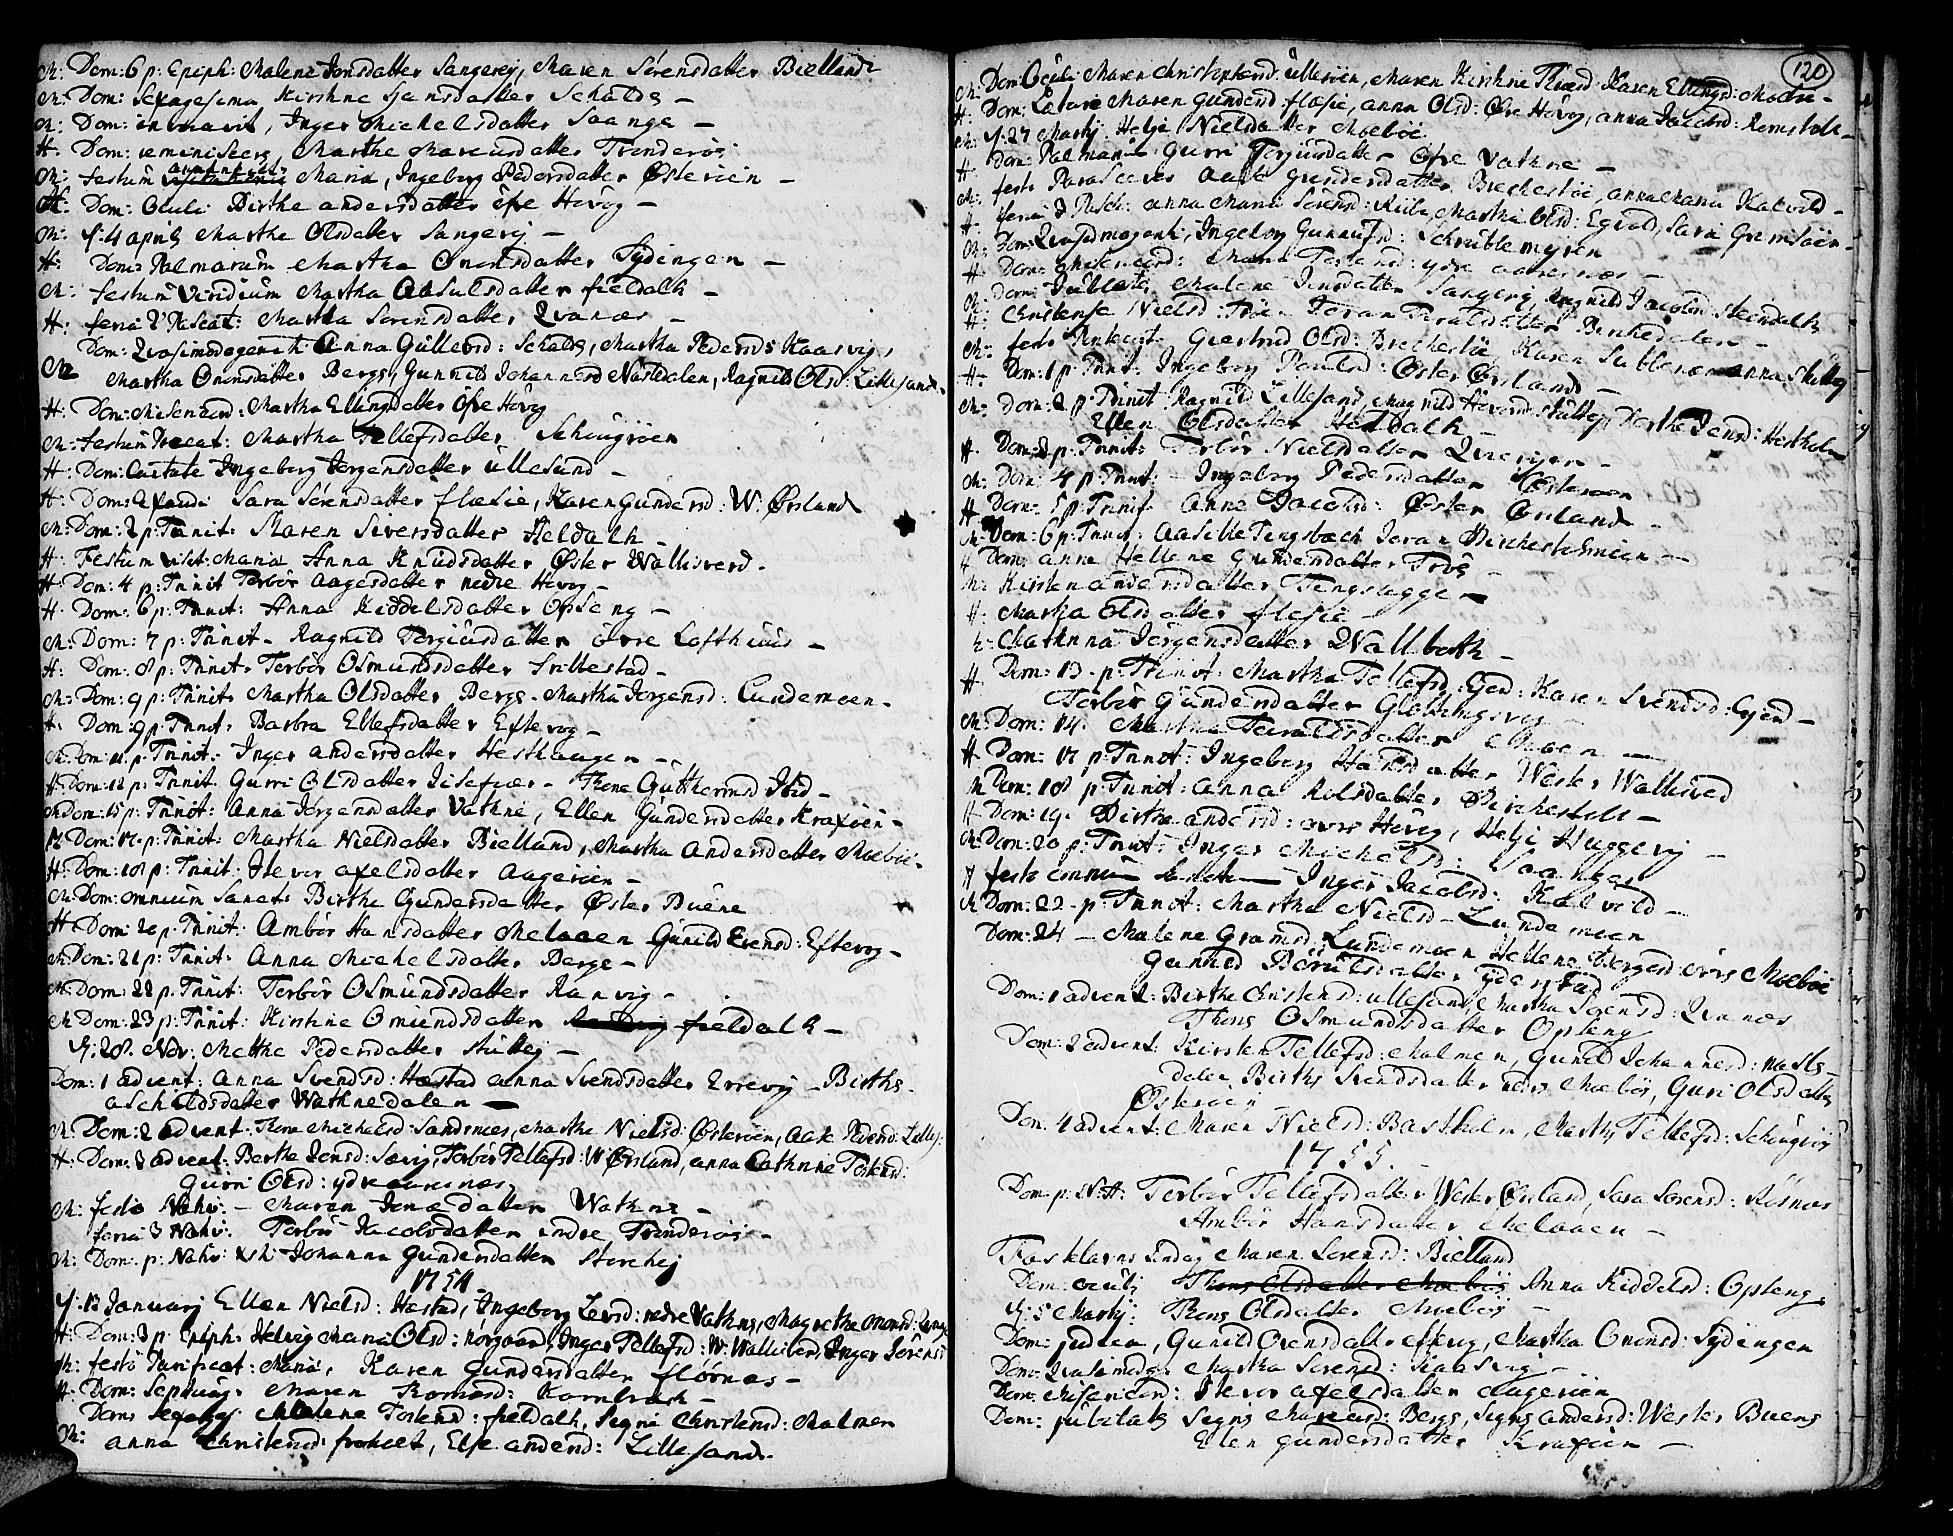 M: Dom: 6 p: Epiph: Malene Jonsdatter Sangereij, Maren Sörensdatter Bielland
M: Dom: Sexagesima Kirstine Jensdatter Schalde —
M: Dom: invocavit, Inger Michelsdatter Saange —
H: Dom: reminiscere, Marthe Marcusdatter Trinderöe
M: festum Maria, Ingeborg Pedersdatter Østeröen —
H: Dom: Oculi Birthe andersdatter öfre Høvog —
M: d: 4 april Marthe Olsdatter Sangerij —
H: Dom: Palmarum Martha Omonsdatter Sÿdingen —
M: festum viridium Martha Aasulsdatter fieldalk —
H: feria 2 Pascat: Martha Sorensdatter Qvanæs —
Dom: Qvasimodogeniti Anna Gullevsd: Schalde, Martha Pedersd: Kaasvig,
M: Martha Omonsdatter Berge, Gunnild Johannesd Nastdalen, Ragnild Olsd: Lillesand.
H: Dom: Misericord: Martha Ellingsdatter öfre Hovog
M: festum Precat: Martha Tellefsdatter Schingröen
H: Dom: Cantate Ingeborg Jörgensdatter üllesund —
H: Dom: Exaudi Sara Sörensdatter flæsie, Karen Gundersd: W: Ørsland
M: Dom: 2 p: Trinit: Maren Siversdatter Heldalk —
H: Festum visit: Maria Anna Knudsdatter Øster Wallisverd.
H: Dom: 4 p: Trinit Torbör aagesdatter nedre Hovog —
H: Dom: 6 p: Trinit: Anna Kiddelsdatter Opseng —
M: Dom: 7 p: Trinit — Ragnild Torgiusdatter övre Lofthuus —
H: Dom: 8 p: Trinit: Torbör Osmundsdatter Trillestad —
M: Dom: 9 p: Trinit Martha Olsdatter Berge. Martha Jörgensd: Lundemoen.
H: Dom: 9 p: Trinit: Barbra Ellefsdatter Eftevog —
M: Dom: 11 p: Trinit: Inger andersdatter Hesthaugen —
H: Dom: 12 p: Trinit Gurri Olsdatter Jisefiær — Thone Gutthormsd Ibid —
M: Dom: 15 p: Trinit: Anna Jörgensdatter Vathne, Ellen Gundersdatter Kraxöen —
M: Dom: 17 p: Trinit: Martha Nielsdatter Bielland, Martha Andersdatter Moeböe.
H: Dom: 18 p: Trinit: Sævor axelsdatter aageröen —
M: Dom: omnium Sanct: Birthe Gundersdatter Øster Buene
H: Dom: 20 p: Trinit: Ambör Hansdatter Melaaen Gunild Evensd: Eftevog —
M: Dom: 21 p: Trinit: Anna Michelsdatter Berge —
H: Dom: 22 p: Trinit: Torbör Osmundsdatter Ranvig —
M: Dom: 23 p: Trinit: Kirstine Omundsdatter fieldalk —
d: 28. Nov: Mette Pedersdatter stuttej —
Dom: 1 advent: Anna Svendsd: Hæstad anna Svendsdatter Errevij — Birthe
aschildsdatter Wathnedalen —
M: Dom: 2 advent: Thone Michelsd: Sandsnæs, Marthe Nielsd: Østeröen, Aase Pedersd: Lilles:
H: Dom: 3 advent: Berthe Jensd: Sævig, Torbör Tellefsd: W: Ørsland, anna Cathrine Torkelsd:
Gurri Olsd: ydre aaresnæs
M: festo Nativ: — Maren Jonædatter Wathne —
feria 3 Nativ: Torbör Jacobsdatter indre Trinderöe —
M: Dom: p: Nativ: Xsti Johanna Gundersdatter Storehej
1754.
d: 13 Januarij Ellen Nielsd: Hæstad, Ingeborg Leersd: nedre Vathne, Magrethe Omonsd: Lange
H: Dom: 3 p: Epiph: Helvig Maria Olsd: norgaard, Inger Tellefsd: W: Walliverd, Inger Sörensd
M: festo Purificat: Maria, Karen Gundersdatter flörnæs —
H: Dom: Septuag: Maren Romersd: Kornbrek —
Dom: Sexages: Malene Torkensd: fieldalk, Segne Christensd: Malmen
M: anna Christensd: frokset, Else andersd: Lillesand.
120
M: Dom: Oculi Maren Christophersd: ülleröen, Maren Kirstine Thuesd: Karen Ellingsd: Moelse —
H: Dom: Letare Maren Gundersd: flæsie, anna Olsd: Øvre Hövog, anna Jacobsd: Ramsdalk —
M: d: 27 Martij Helje Nielsdatter Moeböe
H: Dom: Palmarum Gurri Torgiusdatter Øvre Vathne —
M: festo Parasceves Aase Gundersdatter Brechestöe, anna Maria Kalvild —
H: feria 2 Pasch: anna Maria Sorensd: Kiile, Martha Olsd: Egvad, Sara Grimsöen —
M: Dom: Qvasimogenti, Ingeborg Gunulfsd: Schriblemyren
H: Dom: Misericord: Maria Torkensd: ydre aaresnæs —
M: Dom: Jubilate, Malene Jensdatter Sangerij, Ragnild Jacobsd: Steindalk
H: Christense Nielsd: Tröe, Joran Toralsdatter Birchedalen —
M: festo Pentecost: Giertrud Olsd: Brechestöe, Karen anna Stuttej
H: Dom: 1 p: Trinit: Ingeborg Poulsd: Øster Ørsland —
M: Dom: 2 p: Trinit Ragnild Lillesand, Magnild Haversd: stuttej, Dorthe Jensd: Hestholm
Ellen Olsdatter Heldalk —
H: Dom: 3 p: Trinit: Torbör Nielsdatter Qveviger —
M: Dom: 4 p: Trinit: Ingeborg Pedersdatter Østeröen
H: Dom: 5 p: Trinit Anne Jacobsd: Øster Ørsland —
M: Dom: 6 p: Trinit: Aasille Tingsbæch Joran Birchestolmoen —
H: Dom: anna Hellene Gundersdatter Tröe —
M: Kirsten andersdatter Tingsægge —
H: Martha Olsdatter flesie —
M: Cathrina Jörgensdatter Wallboth —
H: Dom: 13. p: Trinit: Martha Tellefsd: Gjed: Karen Svendsd: Gjed —
Torbör Gundersdatter Glostingsvog —
M: Dom: 14. Martha Toralsdatter Moen —
H: Dom: 17 p: Trinit: Ingeborg Hansdatter Wester Wallisverd
M: Dom: 18 p: Trinit: anna Rolsdatter Birchestolk —
H: Dom: 19. Birthe andersd: övre Hövog, Helje Huggevij —
M: Dom: 20 p: Trinit: Inger Michelsd: Saanger
H: festo omnium Sanctorum Inger Jacobsd: Kalvild —
M: Dom: 22. p: Trinit: Martha Nielsd — Lundemoen
Dom: 24 — Malene Gramsd: Lundemoen Hellene Torgersd övre Moeböe
Gunild Börulsdatter ijdenstad
Dom: 1 advent: Birthe Christensd: üllesund, Martha Sorensd: Qvanæs
Thone Osmundsdatter Opseng
Dom: 2 advent: Kirsten Tellefsd: Malmen, Gunild Johannesd: nasle-
dalen, Birthe Svendsdatter nedre Moeböe, Guri Olsdatter
Østeröen
Dom: 4 advent: Maren Nielsd: Bastholm, Marthe Tellefsd: Schingröe
1755.
Dom: p: N: A: Torbör Tellefsdatter Wester Ørsland, Sara Sorensd: Rosnæs
Ambör Hansdatter Melaaen —
Fastelavns Sondag Maren Sorensd: Bielland
Dom: oculi Thone Olsdatter Moeböe Anna Kiddelsd: Opseng,
d: 5 Martij: Thone Olsdatter Moeböe —
Dom: judica, Gunild Evensdatter eftevig, Martha Omonsd: Sÿdingen
Dom: Qvasimodog: Martha Sorensd: Kaasvig —
Dom: Misericord: Sevor axelsdatter aageröen
Dom: jubilate Segne Marcusd: Berge, Segne andersd: Wester Buene
Ellen gundersdatter Kraxöen —